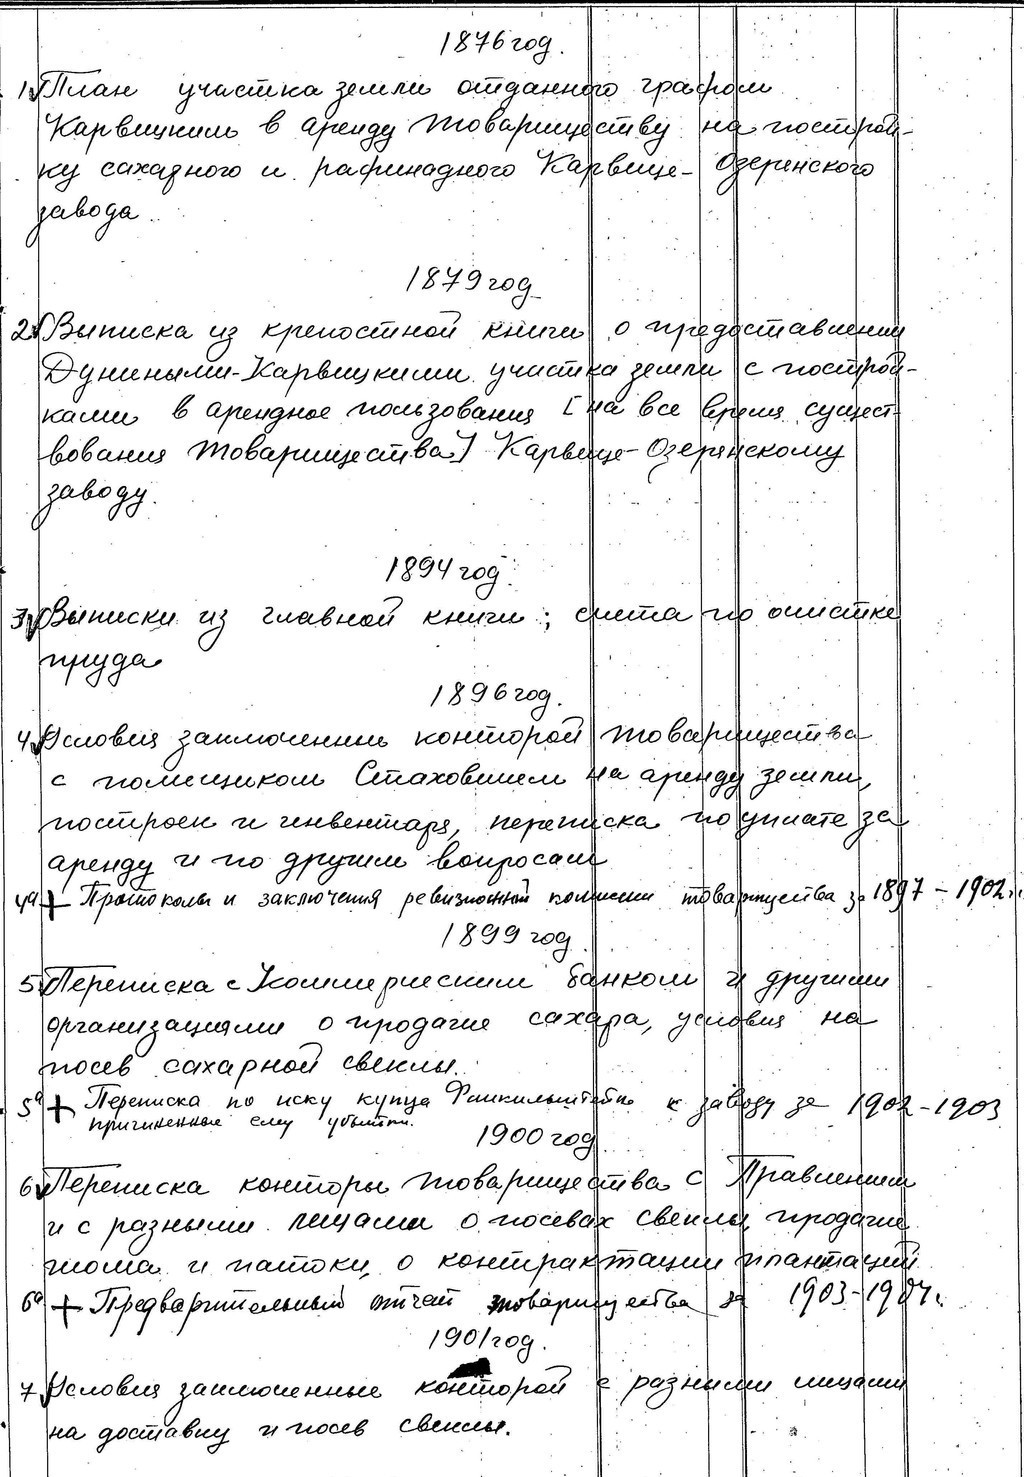 1876 год.
1. План участка земли отданного графом
Карвицким в аренду товариществу на построй-
ку сахарного и рафинадного Карвице-Озеренского
завода.
1879 год
2. Выписка из крепостной книги о предоставлении
Дуниными-Карвицкими участка земли с построй-
ками в арендное пользования [на все время сущест-
вования товарищества] Карвице-Озерянскому
заводу.
1894 год.
3. Выписки из главной книги; смета по очистке
пруда
1896 год.
4. Условия заключенные конторой товарищества
с помещиком Стаховичем на аренду земли,
построек и инвентаря, переписка по уплате за
аренду и по другим вопросам
4а + Протоколы и заключения ревизионной комиссии товарищества за 1897-1902 г.
1899 год
5. Переписка с Коммерческим банком и другими
организациями о продаже сахара, условия на
посев сахарной свеклы.
5а + Переписка по иску купца к заводу за 1902-1903
причиненные ему убытки.
1900 год
6. Переписка конторы товарищества с Правлением
и с разными лицами о посевах свеклы, продаже
жома и патоки, о контрактации плантаций
6а + Предварительный отчет товарищества за 1903-1904 г.
1901 год.
7. Условия заключенные конторой с разными лицами
на доставку и посев свеклы.